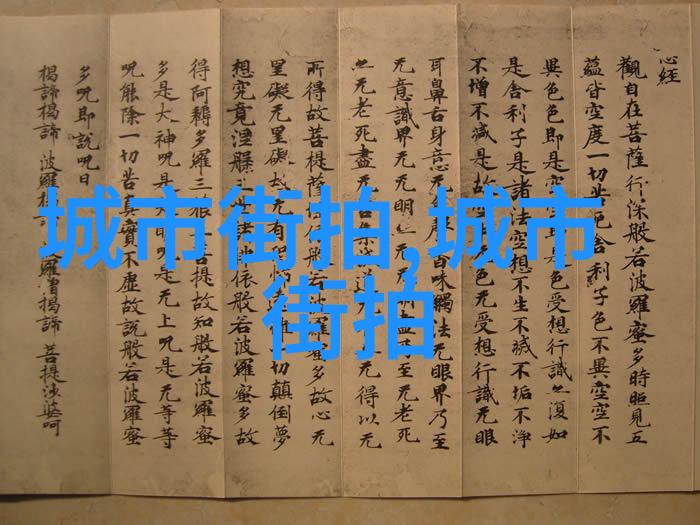 心经
觀自在菩薩行深般若波羅蜜多時照見五
蘊皆空度一切苦厄舍利子色不異空空不
異色色即是空空即是色受想行識亦復如
是舍利子是諸法空想不生不滅不垢不淨
不增不減是故空中无色无受想行識无眼
耳鼻舌身意无聲香味觸法无眼界乃至
无意識界无无明亦无无明盡乃至无老死
亦无老死盡无苦集滅道无得以无
所得故菩提薩埵依般若波羅蜜多故心无
罣礙无罣礙故无有恐怖遠離一切顛倒夢
想究竟涅槃三世諸佛依般若波羅蜜多故
得阿耨多羅三藐菩提故知般若波羅蜜
多是大神呪是大明呪是无上呪是无等等
呪能除一切苦真實不虛故說般若波羅蜜
多呪即說呪曰
揭諦揭諦 波羅揭諦 波羅僧揭諦 菩提娑婆呵
城市街拍,城市
街拍